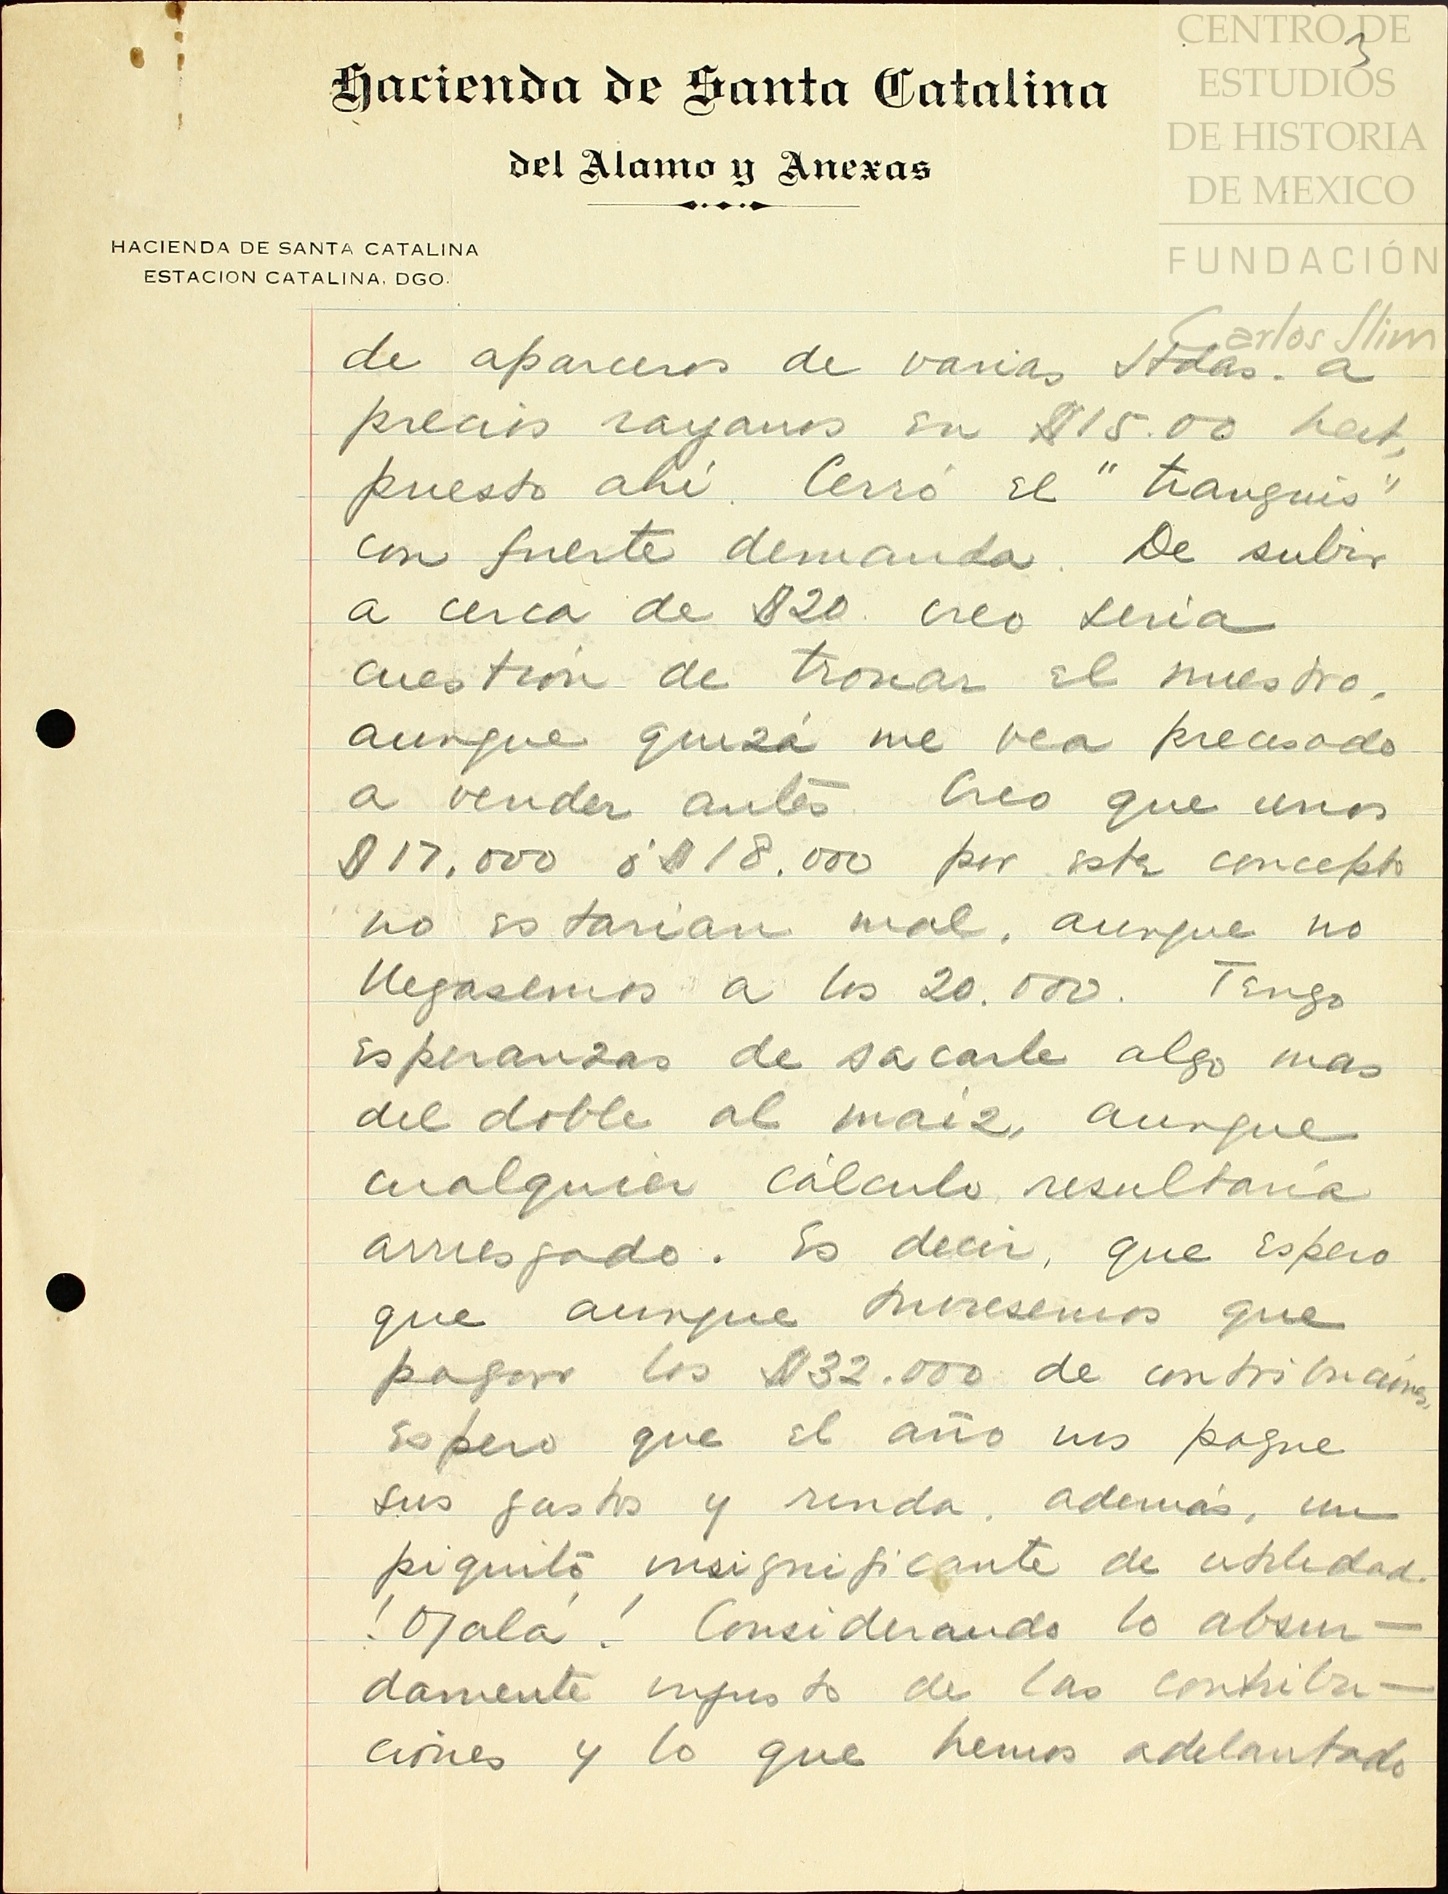 3
CENTRO DE
ESTUDIOS
DE HISTORIA
DE MEXICO
FUNDACIÓN
Carlos Slim
Hacienda de Santa Catalina
del Alamo y Anexas
HACIENDA DE SANTA CATALINA
ESTACION CATALINA, DGO.
de aparceros de varias Hdas. a
precios rayanos en $15.00 hect,
puesto ahí. Cerró el "tianguis"
con fuerte demanda. De subir
a cerca de $20 creo sería
cuestión de tronar el nuestro,
aunque quizá me vea precisado
a vender antes. Creo que unos
$17.000 ó $18.000 por este concepto
no estarían mal, aunque no
llegasemos a los 20.000. Tengo
esperanzas de sacarle algo mas
del doble al maíz, aunque
cualquier cálculo resultaría
arriesgado. Es decir, que espero
que aunque tuviesemos que
pagar los $32.000 de contribuciones,
espero que el año nos pague
sus gastos y rinda, además, un
piquito insignificante de utilidad.
! Ojalá ! Considerando lo absur-
damente injusto de las contribu-
ciones y lo que hemos adelantado